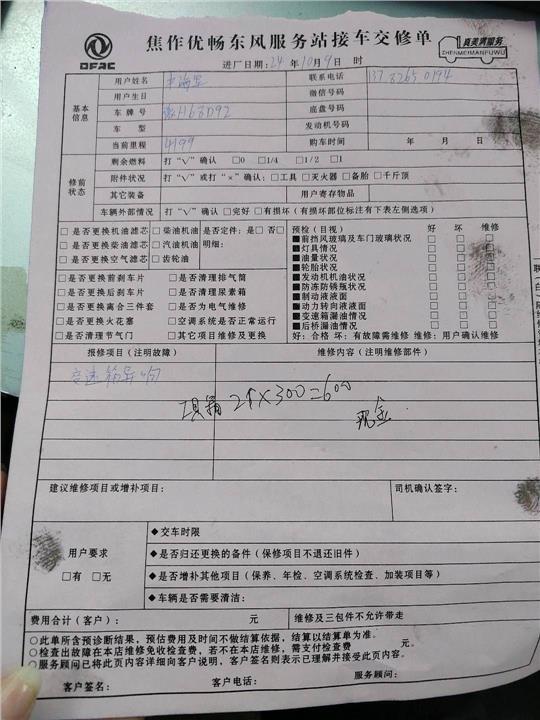 DFAC
焦作优畅东风服务站接车交修单
真美满服务
ZHENMEIMANFUWU
进厂日期:24 年10月9日 时
基本信息
用户姓名
联系电话
用户生日
微信号码
车牌号 H68D92
底盘号码
车型
发动机号码
当前里程 4199
购车时间 年 月 日
修前状态
剩余燃料 打“√”确认 □0 □1/4 □1/2 □1
附件状况 打“√”或打“×”确认:□工具 □灭火器 □备胎 □千斤顶
其它装备
用户寄存物品
车辆外部情况 打“√”确认 □完好 □有损坏(有损坏部位标注有下表左侧选项)
□是否更换机油滤芯 □柴油机油 是否定件:是□ 否□
□是否更换柴油滤芯 □汽油机油 明细:
□是否更换空气滤芯 □齿轮油
□是否更换前刹车片 □是否清理排气筒
□是否更换后刹车片 □是否清理尿素箱
□是否更换离合三件套 □是否为电气维修
□是否更换火花塞 □空调系统是否正常运行
□是否清理节气门 □其它项目维修及更换
预检(目视) 好 坏 维修
■前挡风玻璃及车门玻璃状况 □ □ □
■灯具情况 □ □ □
■油量状况 □ □ □
■轮胎状况 □ □ □
■发动机机油状况 □ □ □
■防冻防锈瓶状况 □ □ □
■制动液液面 □ □ □
■动力转向液液面 □ □ □
■变速箱漏油情况 □ □ □
■后桥漏油情况 □ □ □
好:合格 坏:有故障需维修 维修:用户确认维修
报修项目(注明故障) 维修内容(注明维修部件)
变速箱异响
工具箱 2个×300=600
现金
建议维修项目或增补项目:
司机确认签字:
用户要求
□有 □无
◆交车时限
◆是否归还更换的备件(保修项目不退还旧件)
◆是否增补其他项目(保养、年检、空调系统检查、加装项目等)
◆车辆是否需要清洁:
费用合计(客户): 元 维修及三包件不允许带走
○此单所含预诊断结果,预估费用及时间不做结算依据,结算以结算单为准。
○检查出故障在本店维修免收检查费,若不在本店维修,需支付检查费 元。
○服务顾问已将此页内容详细向客户说明,客户签名则表示已理解并接受此页内容。
客户签名: 客户电话: 服务顾问:
联
白